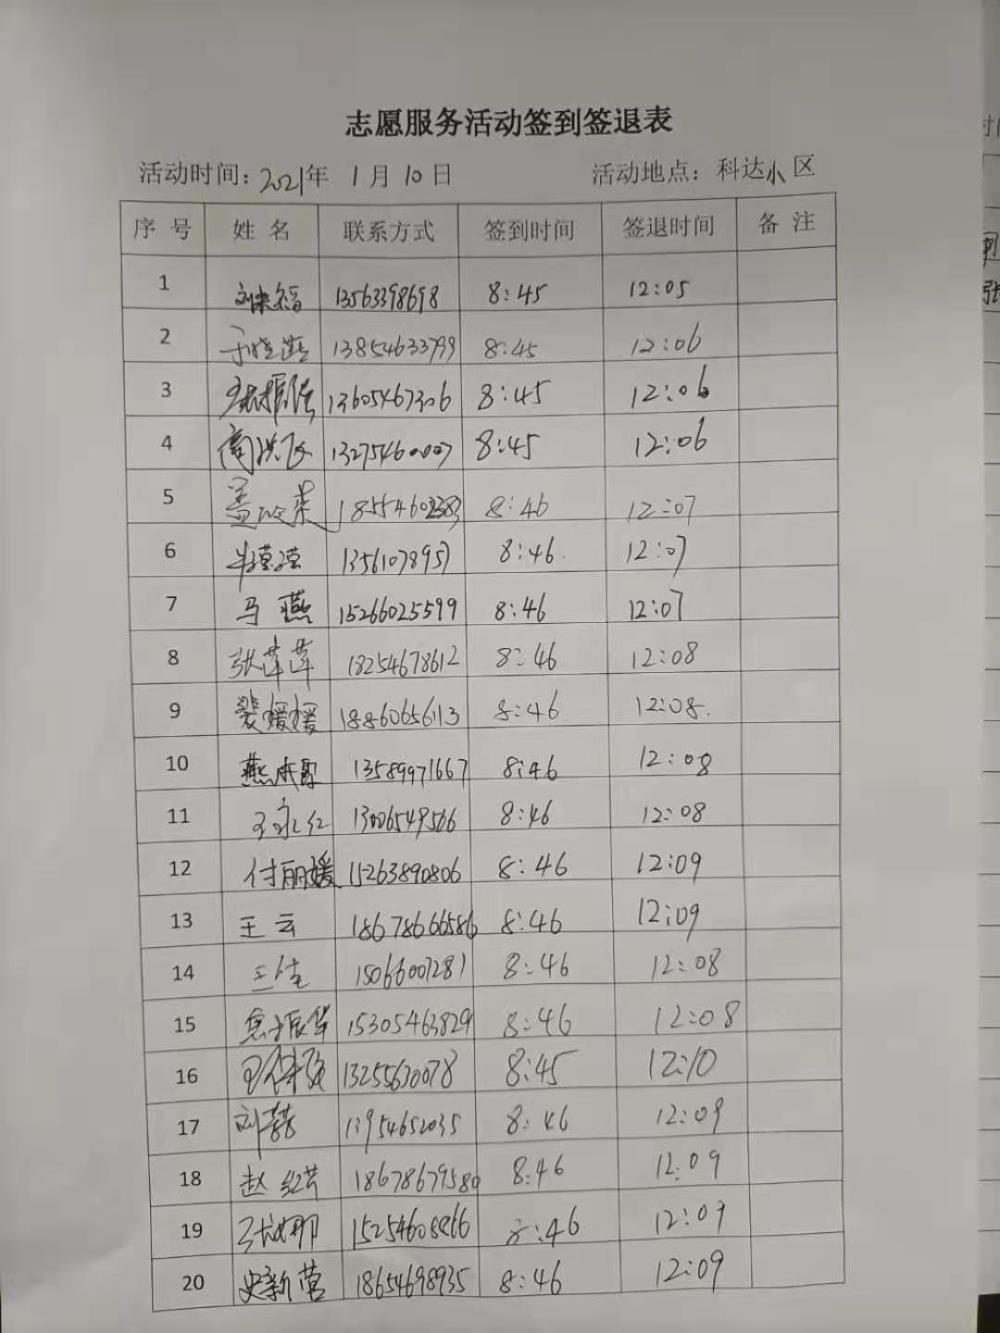 志愿服务活动签到签退表
活动时间：2021年 1月 10日 活动地点：科达小区
序号 姓名 联系方式 签到时间 签退时间 备注
1 13563398698 8:45 12:05
2 于晓燕 13854633799 8:45 12:06
3 13605467306 8:45 12:06
4 商洪飞 13275460007 8:45 12:06
5 8:46 12:07
6 13561078957 8:46 12:07
7 马燕 15266025599 8:46 12:07
8 张萍萍 18254678612 8:46 12:08
9 裴媛媛 18860656113 8:46 12:08
10 13589971667 8:46 12:08
11 王永红 13006549566 8:46 12:08
12 付丽媛 15263890806 8:46 12:09
13 王云 18678666586 8:46 12:09
14 王佳 15066007281 8:46 12:08
15 15305463829 8:46 12:08
16 13255630078 8:45 12:10
17 13954652035 8:46 12:09
18 赵红芸 18678679580 8:46 12:09
19 张娜 8:46 12:09
20 史新营 18654698935 8:46 12:09